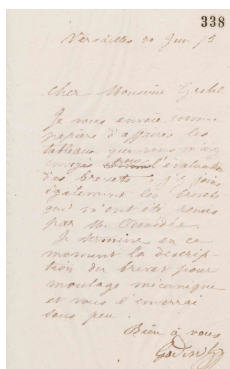 338
Versailles 20 Juin 73
Cher Monsieur
Je vous envoie comme
papiers d'affaires les
tableaux que vous m'avez
envoyés l'évaluation
des brevets je joins
également les brevets
qui m'ont été remis
par M.
Je termine en ce
moment la descrip-
tion du brevet pour
moulage mécanique
et vous l'enverrai
sous peu.
Bien à vous
Godin